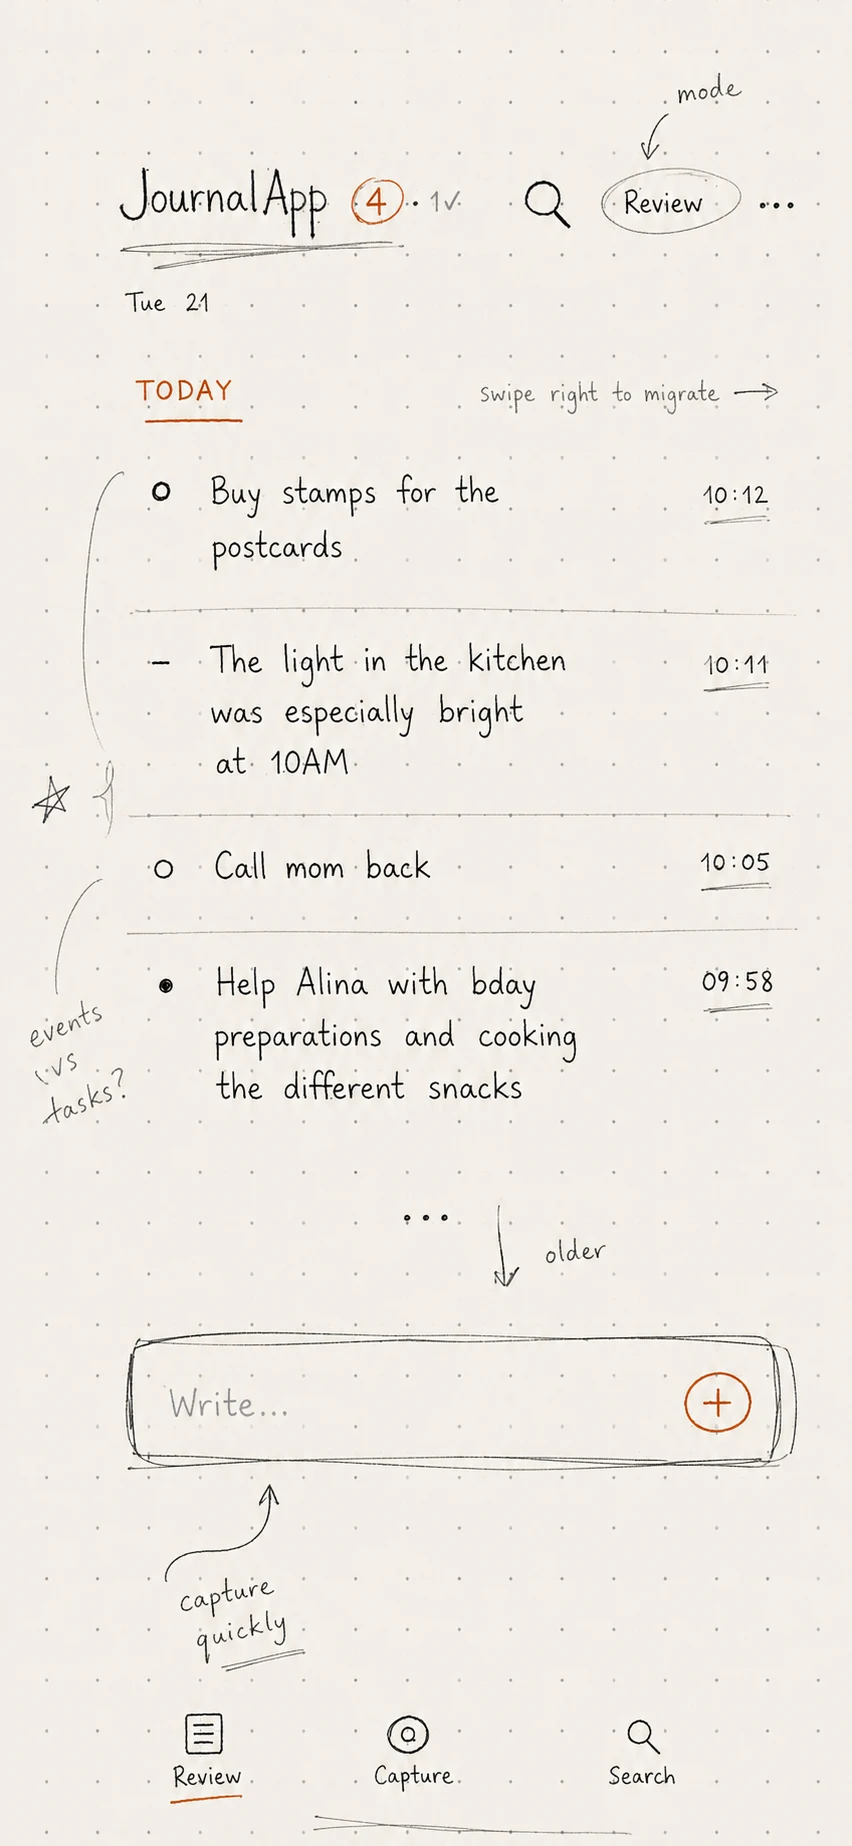 mode
JournalApp 4 · 1✓ Review ...
Tue 21
TODAY swipe right to migrate →
Buy stamps for the 10:12
postcards
– The light in the kitchen 10:11
was especially bright
at 10AM
Call mom back 10:05
• Help Alina with bday 09:58
preparations and cooking
the different snacks
events
vs
tasks?
...
older
Write... +
capture
quickly
Review Capture Search